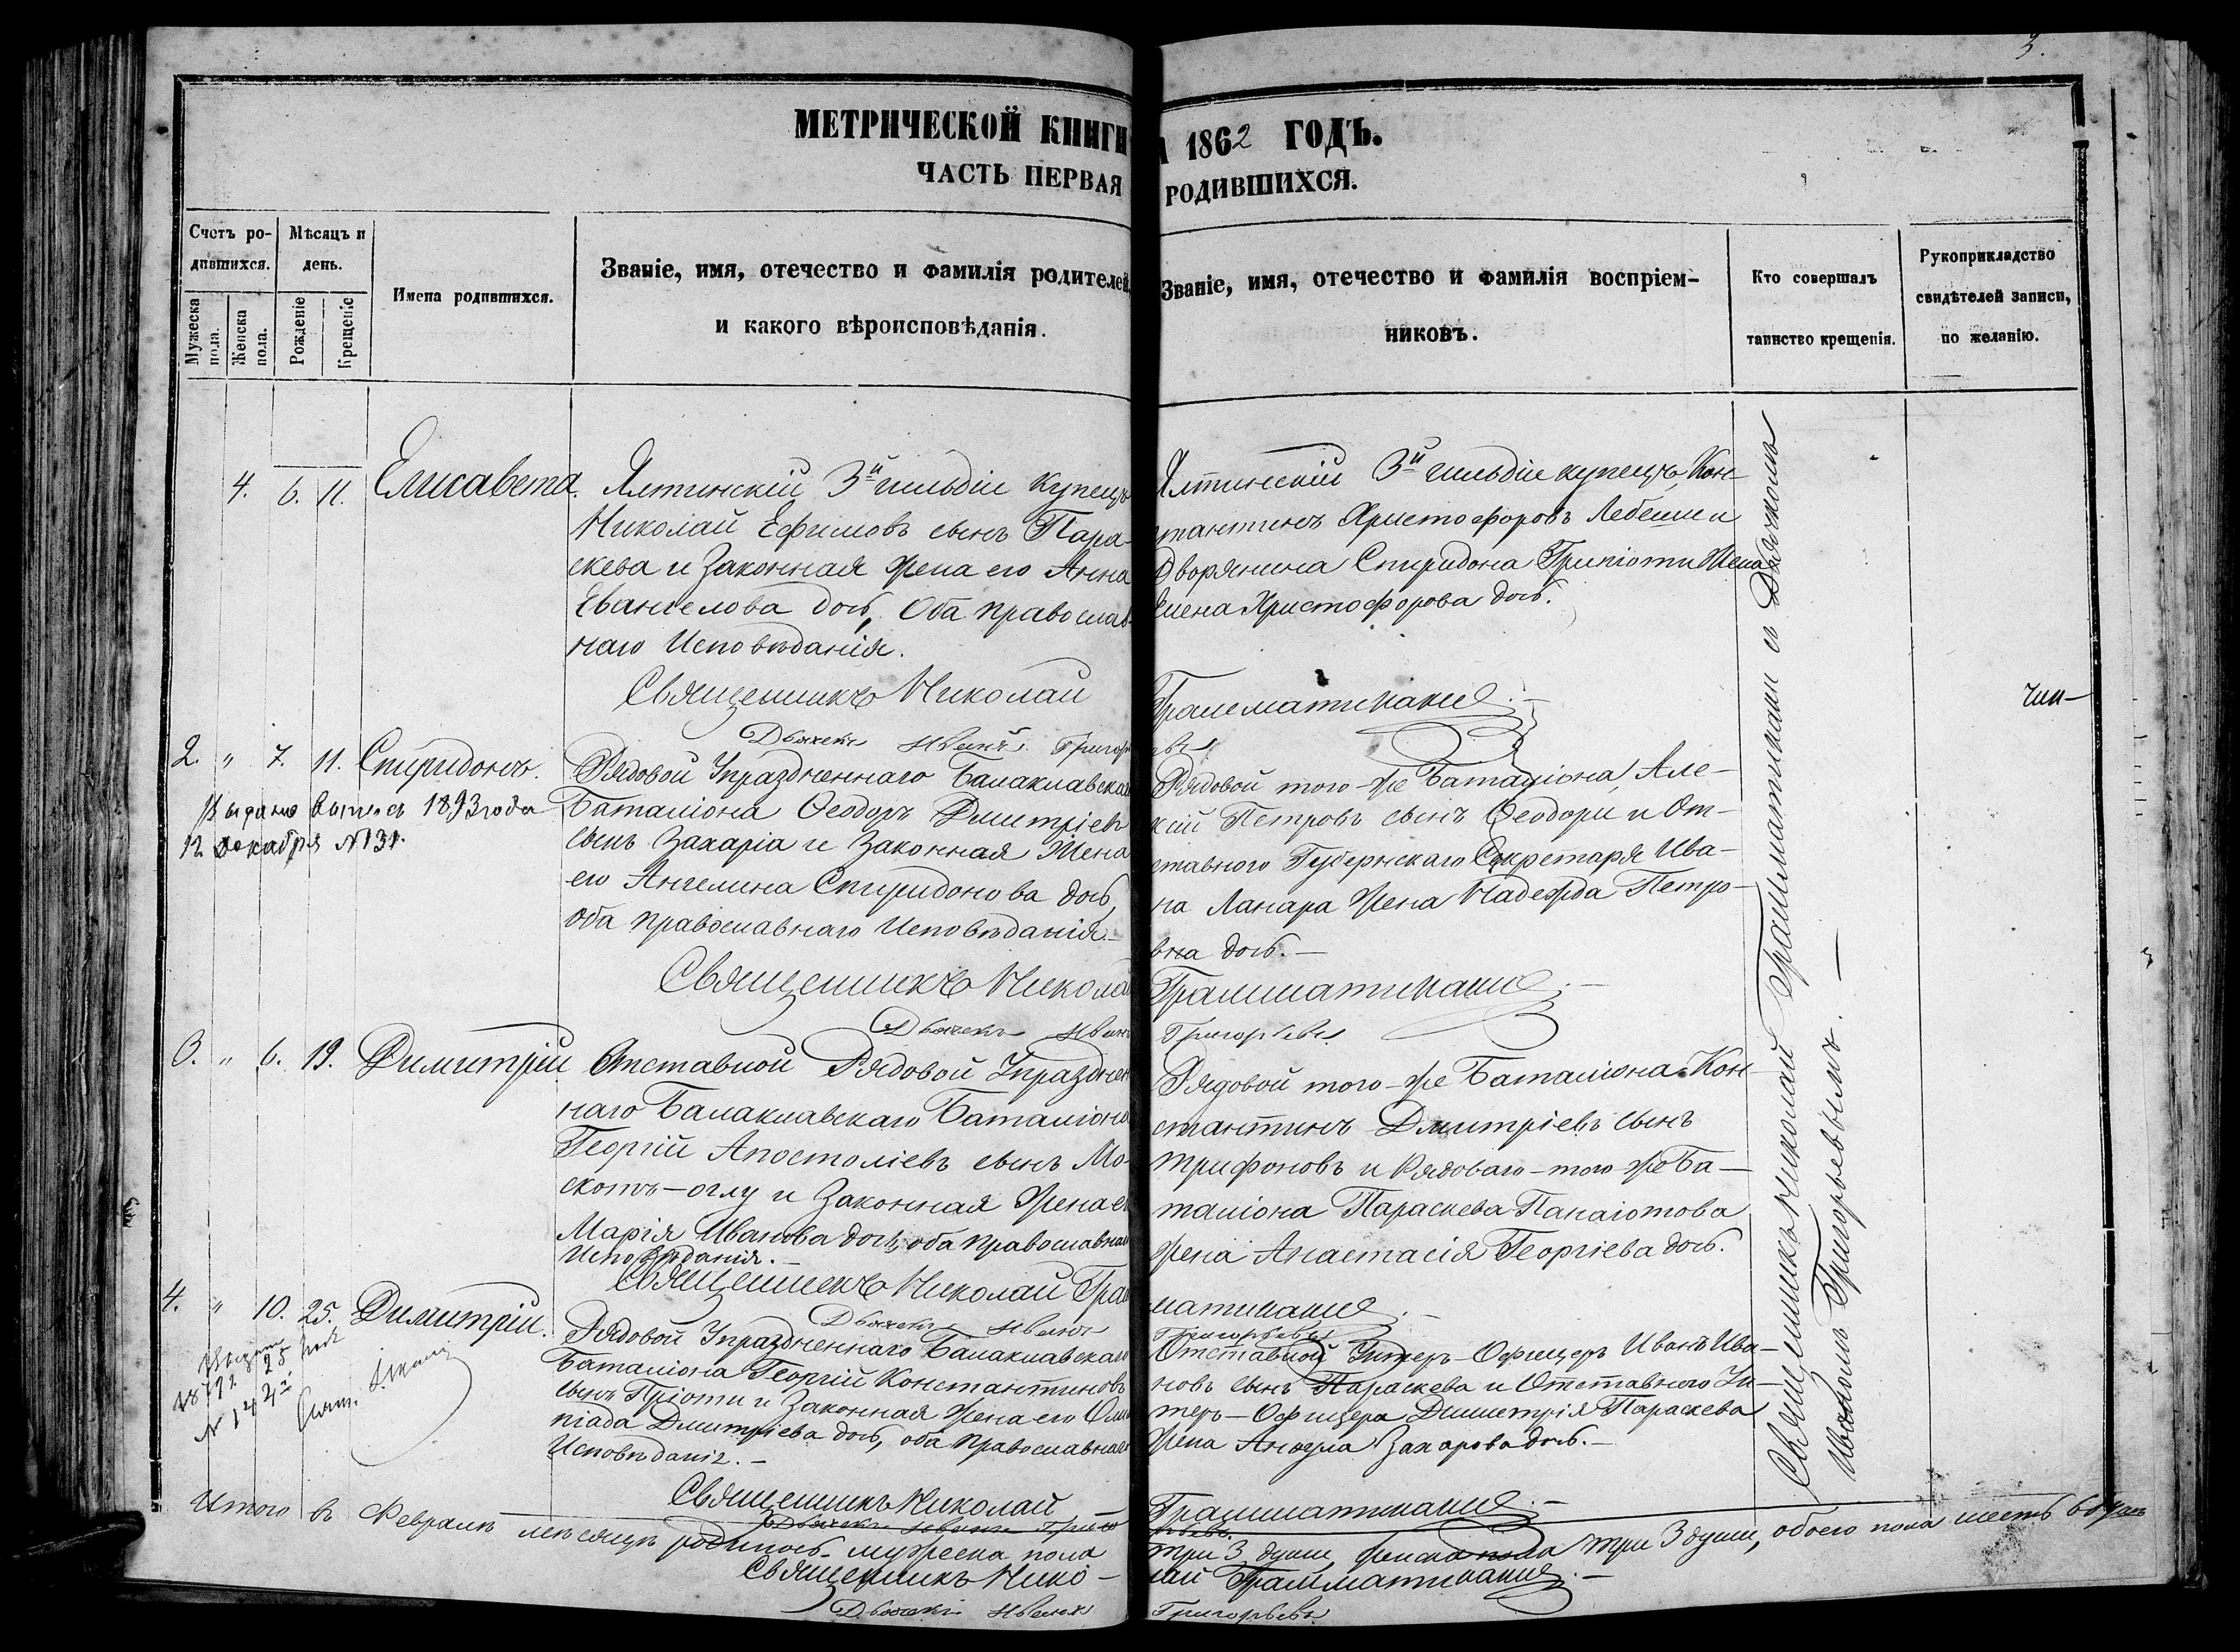 3.
МЕТРИЧЕСКОЙ КНИГИ
1862 ГОДЪ.
ЧАСТЬ ПЕРВАЯ
РОДИВШИХСЯ.
Счетъ родившихся.
Мужеска пола.
Женска пола.
Мѣсяцъ и день.
Рожденіе
Крещеніе
Имена родившихся.
Званіе, имя, отечество и фамилія родителей,
и какого вѣроисповѣданія.
Званіе, имя, отечество и фамилія воспріем-
никовъ.
Кто совершалъ
таинство крещенія.
Рукоприкладство
свидѣтелей записи,
по желанію.
4. 6. 11. Елисавета.
Ялтинскій 3й гильдіи купецъ
Николай Ефимовъ сынъ Пара-
скева и Законная Жена его Анна
Евангелова дочь, Оба Православ-
наго Исповѣданія.
Священникъ Николай
Дьячекъ Иванъ Григорь
Ялтинскій 3й гильдіи купецъ Кон-
стантинъ Христофоровъ Лебеши и
Дворянина Спиридона Грипіоти Жена
Елена Христофорова дочь.
Грамматикани
евъ
чин-
2. " 7. 11. Спиридонъ.
Выдана выпись 1893 года
12 декабря №131.
Рядовой Упраздненнаго Балаклавскаго
Баталіона Феодоръ Дмитріевъ
сынъ Захаріа и Законная Жена
его Ангелина Спиридонова дочь,
оба Православнаго Исповѣданія.
Священникъ Николай
Дьячекъ Иванъ
Рядовой того-же Баталіона, Але-
ксій Петровъ сынъ Феодори и От-
ставного Губернскаго Секретаря Ива-
на Ланара Жена Надежда Петро-
вна дочь.
Грамматикани
Григорьевъ
3. " 6. 19. Димитрій
Отставной Рядовой Упразднен
наго Балаклавскаго Баталіона
Георгій Апостоліевъ сынъ Мо-
скопъ-оглу и Законная Жена его
Марія Иванова дочь, оба Православнаго
Исповѣданія.
Священникъ Николай Грам
Дьячекъ Иванъ
Рядовой того-же Баталіона Кон-
стантинъ Дмитріевъ сынъ
Трифоновъ и Рядоваго-того же Ба-
таліона Параскева Панаіотова
Жена Анастасія Георгіева дочь.
матикани
Григорьевъ
4. " 10. 25. Димитрій.
№ 1424
Рядовой Упраздненнаго Балаклавскаго
Баталіона Георгій Константиновъ
сынъ Пріоти и Законная Жена его Олим
піада Дмитріева дочь, оба Православнаго
Исповѣданія.
Священникъ Николай
Дьячекъ Иванъ Григо
Отставной Унтеръ-Офицеръ Иванъ Ива-
новъ сынъ Параскева и Отставного Ун-
теръ-Офицера Димитрія Параскева
Жена Анжула Захарова дочь.
Грамматикани
рьевъ.
Священникъ Николай Грамматикани съ Дьячкомъ
Иваномъ Григорьевымъ.
Итого въ Февралѣ мѣсяцѣ родилось мужеска пола
три 3 души, женска пола три 3 души, обоего пола шесть 6 душъ
Священникъ Нико-
лай Грамматикани
Дьячекъ Иванъ
Григорьевъ